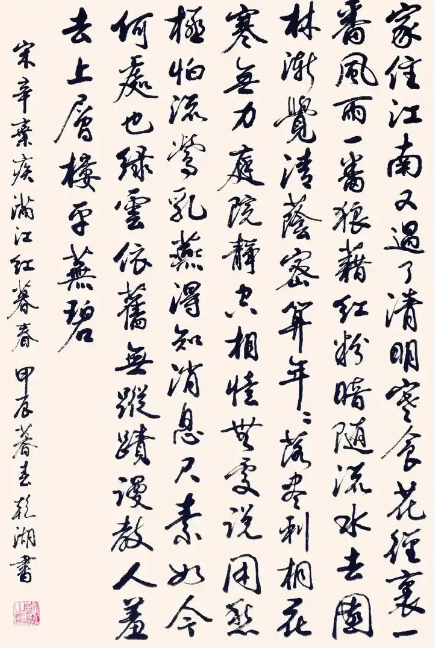 家住江南又過了清明寒食花徑裏一
番風雨一番狼藉红粉暗随流水去園
林漸覺清蔭密算年〻落盡刺桐花
寒無力庭院靜空相憶無處説困愁
極怕流鶯乳燕得知消息尺素如今
何處也緑雲依舊無蹤蹟謾教人羞
去上層樓平蕪碧
宋辛棄疾滿江红暮春 甲辰暮春湖書